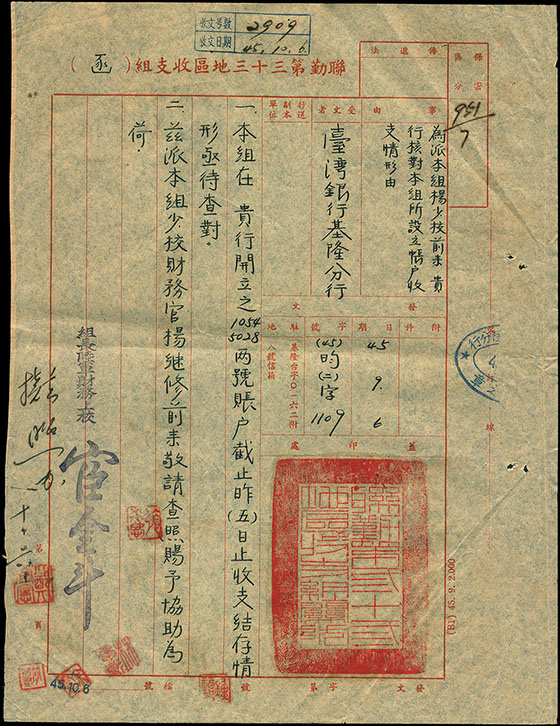 收文号數 2909
收文日期 45.10.6.
聯勤第三十三地區收支組(函)
傳遞法
區分
951/7
事由
為派本組楊少校前來 貴
行核對本組所設立帳戶收
支情形由
受文者
臺灣銀行基隆分行
抄送副本單位
發文
附件
日期 45 9. 6
字號 (45)昀(二)字 1109
駐地 基隆台字〇一六二附八號信箱
蓋印處
一 本組在 貴行開立之 1054 5028 两號賬户截止昨(五)日止收支結存情
形亟待查對。
二 茲派本組少校財務官楊继修前来敬請 查照賜予協助為
荷
組長陸軍財務上校
官金斗
十、六、
45.10.6
第 頁
檔號
發文 字第 號
線
(B1) 45. 9. 2.000